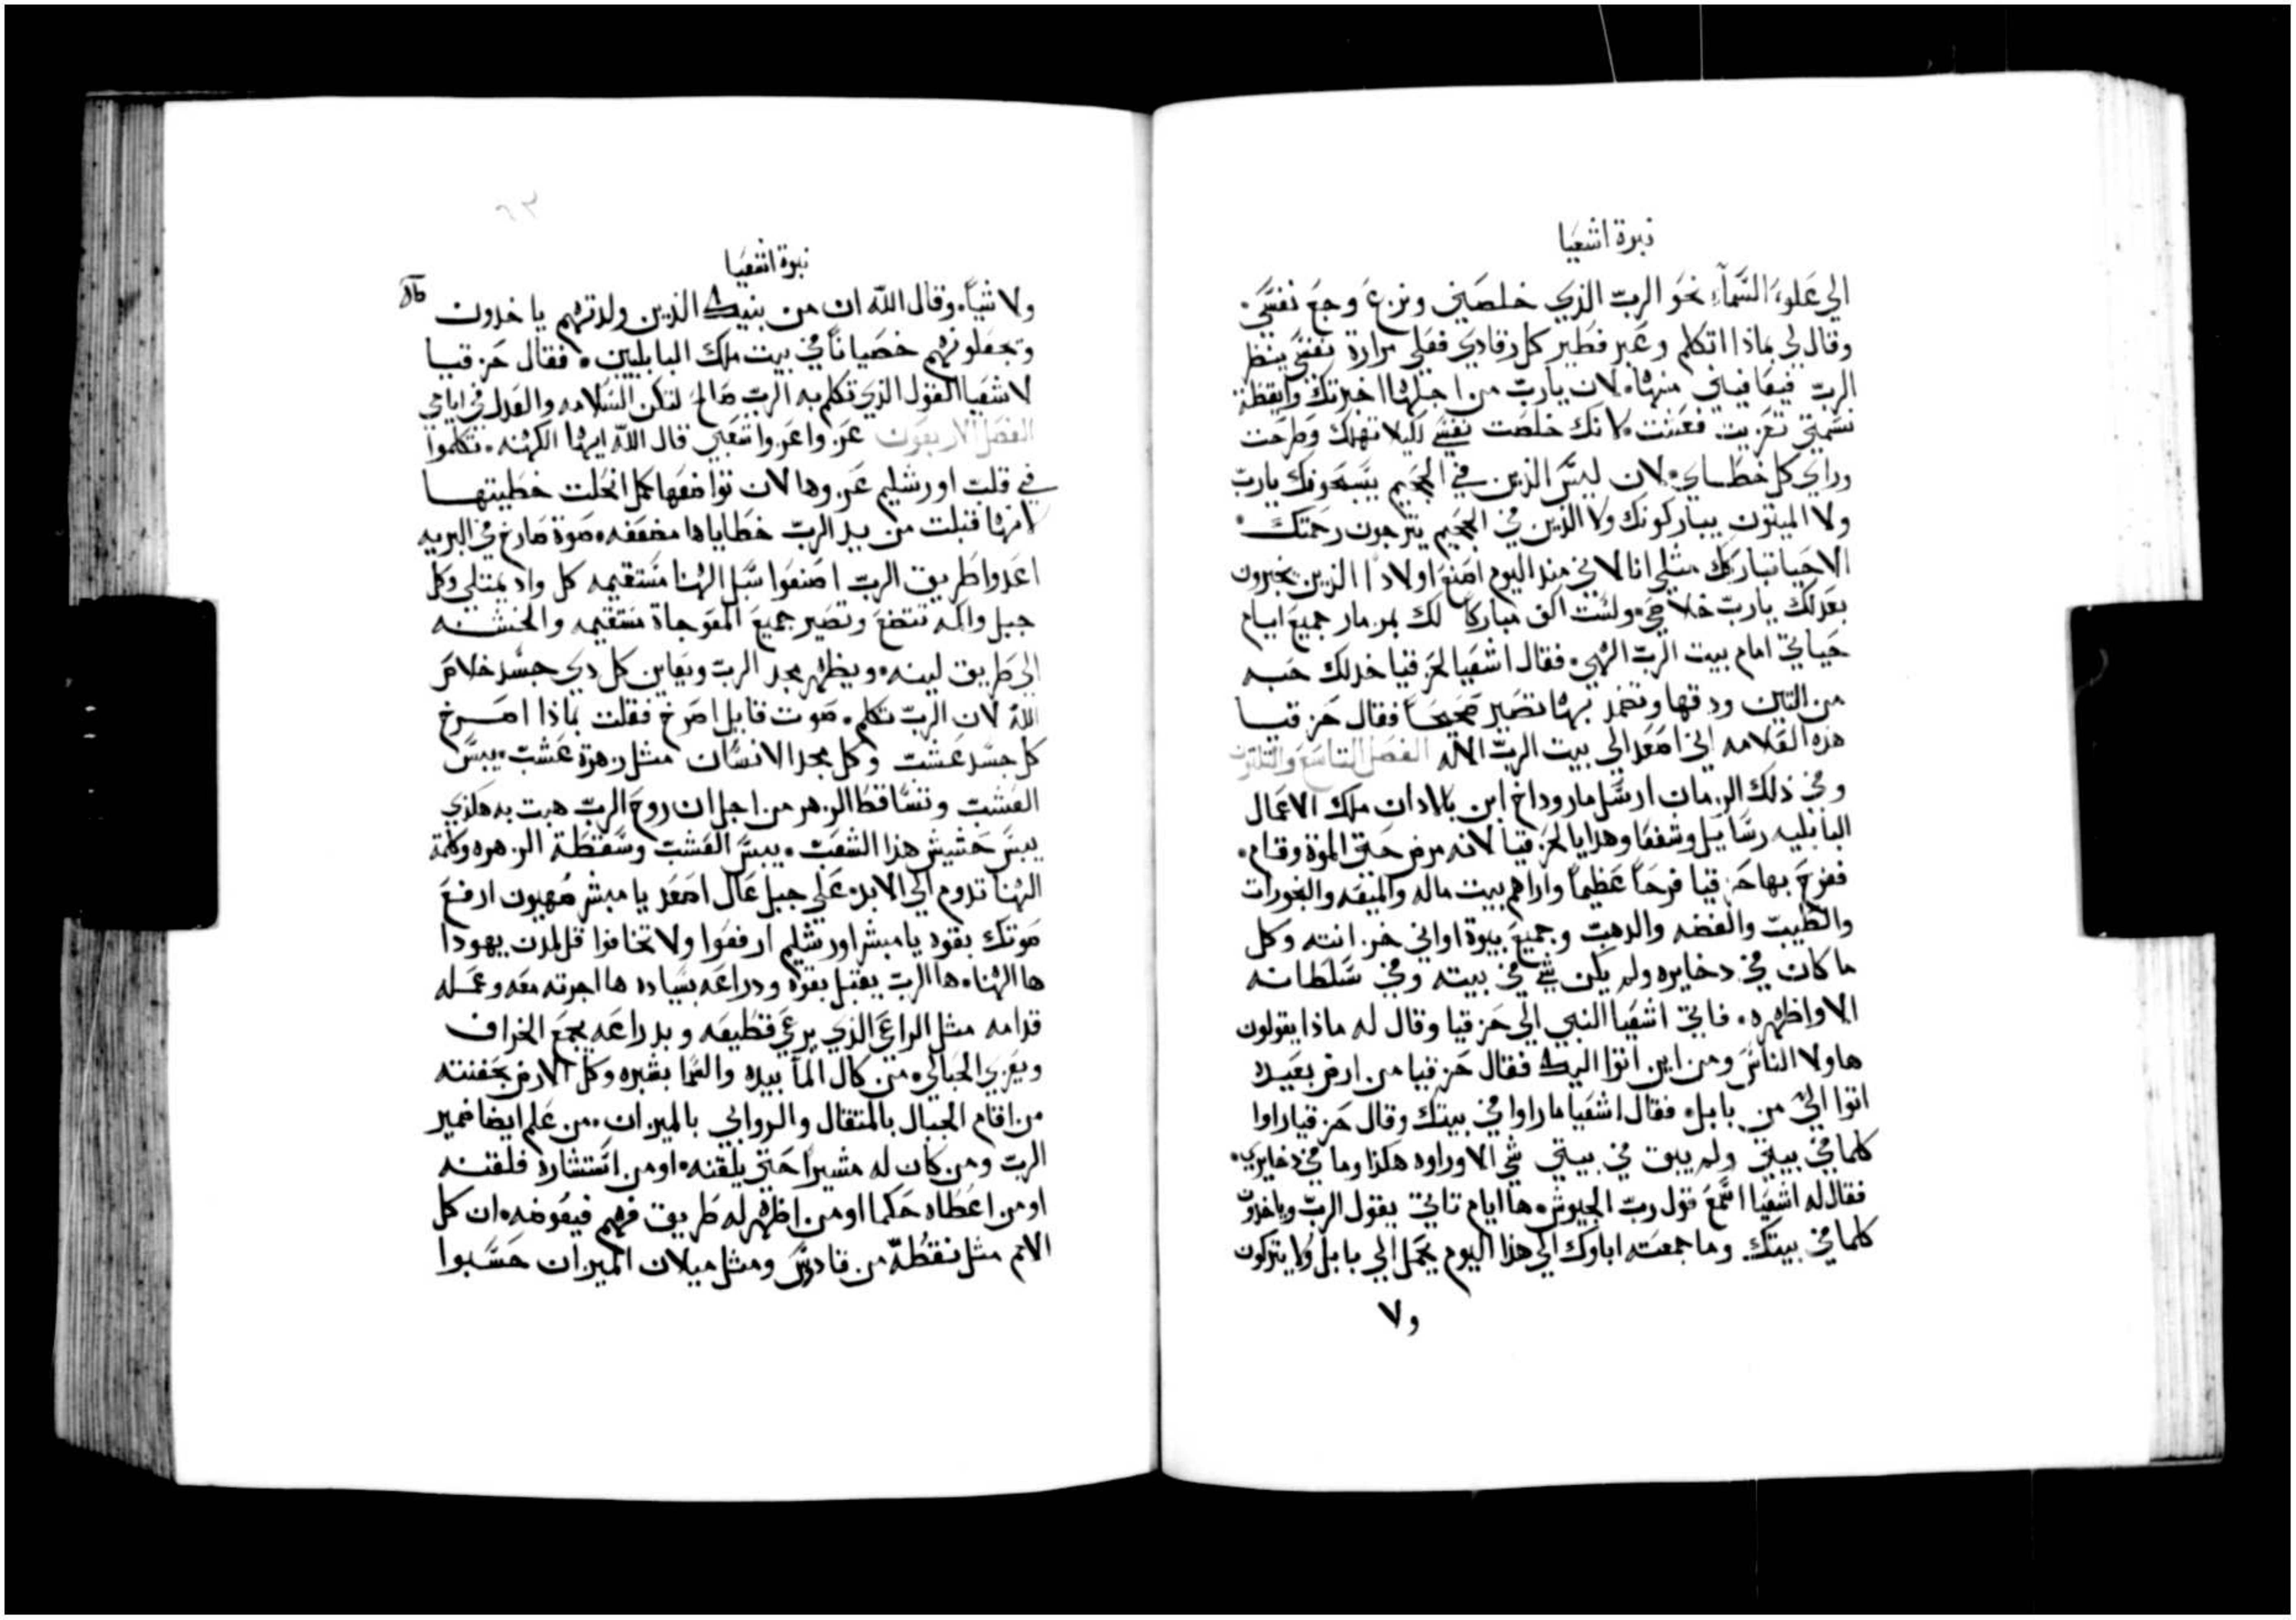 نبوة اشعيا
الي علو السمآء نحو الرب الذي خلصني ونزع وجع نفسي.
وقال لي بماذا اتكلم وعبر فطير كل رقادي فعلي مرارة نفسي ينظر
الرب فيعافيني منها. لان يارب من اجلها اخبرتك وايقظة
نسمتي تعزيت فعشت. لانك خلصت نفسي لكيلا تهلك وطرحت
وراي كل خطاي. لان ليس الذين في الجحيم يسبحونك يارب
ولا الميتون يباركونك ولا الذين في الجحيم يترجون رحمتك.
الاحيا تباركك مثلي انا لاني منذ اليوم اصنع اولادا الذين يخبرون
بعدلك يارب خلاصي. ولست اكف مباركا لك بمزمار جميع ايام
حياتي امام بيت الرب الهي. فقال اشعيا لحزقيا خد لك حبه
من التين ودقها وتضمد بها تصير صحيحا فقال حزقيا
هذه العلامه اني اصعد الي بيت الرب الاله الفصل التاسع والثلاثون
وفي ذلك الزمان ارسل ماروداخ ابن بالادان ملك الاعمال
البابليه رسايل وشفعا وهدايا لحزقيا لانه مرض حتي الموة وقام.
ففرح بها حزقيا فرحا عظيما واراهم بيت ماله والميعه والبخورات
والطيب والفضه والدهب وجميع بيوة اواني خزانته وكل
ما كان في دخايره ولم يكن شي في بيته وفي سلطانه
الا واظهره. فاتي اشعيا النبي الي حزقيا وقال له ماذا يقولون
هاولا الناس ومن اين اتوا اليك فقال حزقيا من ارض بعيده
اتوا الي من بابل. فقال اشعيا ما راوا في بيتك وقال حزقيا راوا
كلما في بيتي ولم يبق في بيتي شي الا وراوه هكذا وما في دخايري.
فقال له اشعيا اسمع قول رب الجيوش. ها ايام تاتي يقول الرب وياخدون
كلما في بيتك وما جمعته اباوك الي هذا اليوم يحمل الي بابل ولا يتركون
ولا
نبوة اشعيا
ولا شياء. وقال الله ان من بنيك الذين ولدتهم ياخدون
وتجعلونهم خصيانا في بيت ملك البابليين. فقال حزقيا
لاشعيا القول الذي تكلم به الرب صالح لتكن السلامه والعدل في ايامي
الفصل الاربعون عزوا عزوا شعبي قال الله ايها الكهنه. تكلموا
في قلب اورشليم عزوها لان تواضعها كمل انحلت خطيتها
لانها قبلت من يد الرب خطاياها مضعفه. صوة صارخ في البريه
اعدوا طريق الرب اصنعوا سبل الهنا مستقيمه كل واد يمتلي وكل
جبل واكمه تتضع وتصير جميع المعوجاة مستقيمه والخشنه
الي طريق لينه. ويظهر مجد الرب ويعاين كل دي جسد خلاص
الله لان الرب تكلم. صوت قايل اصرخ فقلت بماذا اصرخ
كل جسد عشب وكل مجد الانسان مثل زهرة عشب. يبس
العشب وتساقط الزهر من اجل ان روح الرب هبت به هكذي
يبس حشيش هذا الشعب. يبس العشب وسقطة الزهره وكلمة
الهنا تدوم الي الابد. علي جبل عال اصعد يا مبشر صهيون ارفع
صوتك بقوه يا مبشر اورشليم ارفعوا ولا تخافوا قل لمدن يهودا
ها الهنا. ها الرب يقبل بقوه ودراعه بسياده ها اجرته معه وعمله
قدامه مثل الراعي الذي يرعي قطيعه وبدراعه يجمع الخراف
ويعزي الحبالي. من كال المآ بيده والسما بشبره وكل الارض بحفنته
من اقام الجبال بالمتقال والروابي بالميزان. من علم ايضا ضمير
الرب ومن كان له مشيرا حتي يلقنه. او من استشاره فلقنه
او من اعطاه حكما او من اظهر له طريق فهم فيعوضه. ان كل
الامم مثل نقطة من قادوس ومثل ميلان الميزان حسبوا